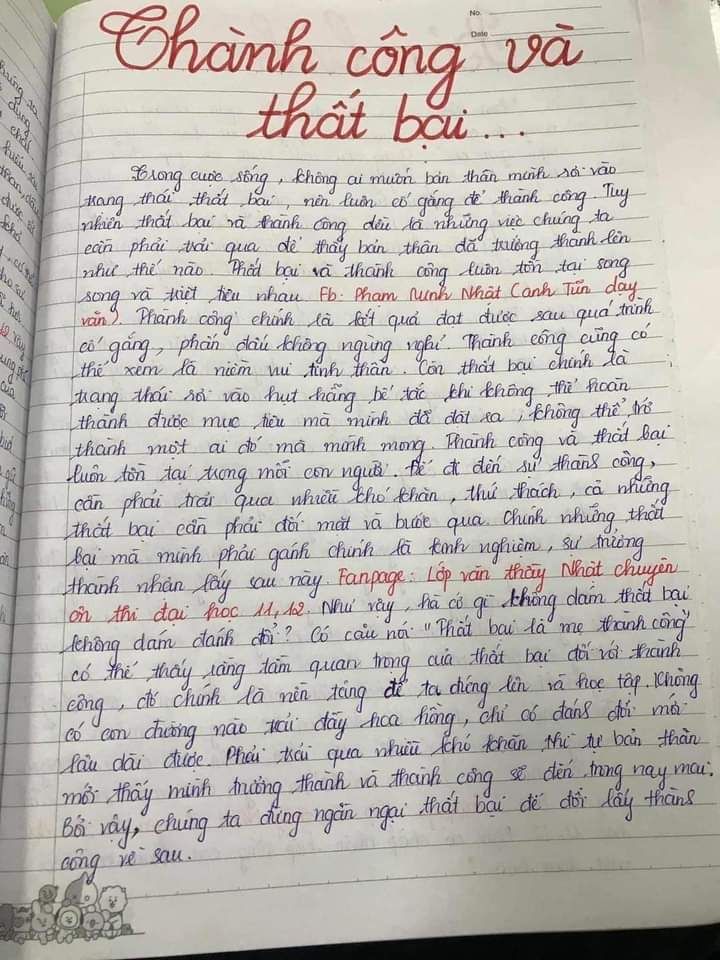 No.
Date
Thành công và
thất bại...
Trong cuộc sống, không ai muốn bản thân mình rơi vào
trạng thái thất bại, nên luôn cố gắng để thành công. Tuy
nhiên thất bại và thành công đều là những việc chúng ta
cần phải trải qua để thấy bản thân đã trưởng thành lên
như thế nào. Thất bại và thành công luôn tồn tại song
song và triệt tiêu nhau Fb: Phạm Minh Nhật (anh Tũn dạy
văn). Thành công chính là kết quả đạt được sau quá trình
cố gắng, phấn đấu không ngừng nghỉ. Thành công cũng có
thể xem là niềm vui tinh thần. Còn thất bại chính là
trạng thái rơi vào hụt hẫng bế tắc khi không thể hoàn
thành được mục tiêu mà mình đã đặt ra, không thể trở
thành một ai đó mà mình mong. Thành công và thất bại
luôn tồn tại trong mỗi con người. Để đi đến sự thành công,
cần phải trải qua nhiều khó khăn, thử thách, cả những
thất bại cần phải đối mặt và bước qua. Chính những thất
bại mà mình phải gánh chính là kinh nghiệm, sự trưởng
thành nhận lấy sau này. Fanpage: Lớp văn thầy Nhật chuyên
ôn thi đại học 11, 12. Như vậy, hà cớ gì không dám thất bại
không dám đánh đổi? Có câu nói "Thất bại là mẹ thành công"
có thể thấy rằng tầm quan trọng của thất bại đối với thành
công, đó chính là nền tảng để ta đứng lên và học tập. Không
có con đường nào trải đầy hoa hồng, chỉ có đánh đổi mới
lâu dài được. Phải trải qua nhiều khó khăn thì tự bản thân
mới thấy mình trưởng thành và thành công sẽ đến trong nay mai.
Bởi vậy, chúng ta đừng ngần ngại thất bại để đổi lấy thành
công về sau.